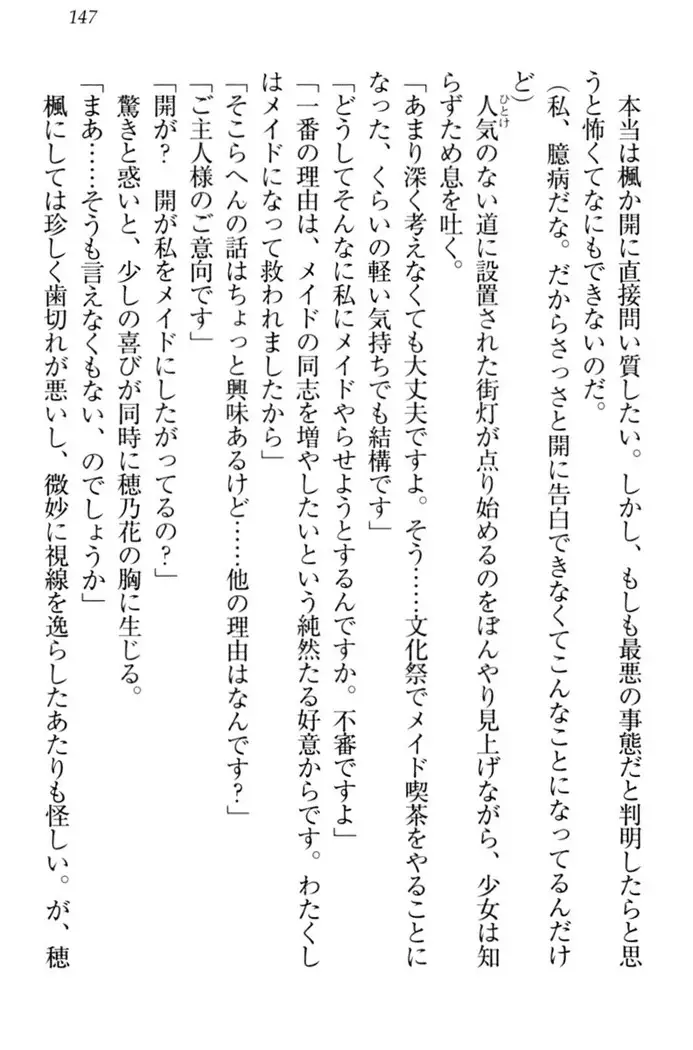 147
本当は楓か開に直接問い質したい。しかし、もしも最悪の事態だと判明したらと思
うと怖くてなにもできないのだ。
（私、臆病だな。だからさっさと開に告白できなくてこんなことになってるんだけ
ど）
人気のない道に設置された街灯が点り始めるのをぼんやり見上げながら、少女は知
ひとけ
らずため息を吐く。
「あまり深く考えなくても大丈夫ですよ。そう……文化祭でメイド喫茶をやることに
なった、くらいの軽い気持ちでも結構です」
「どうしてそんなに私にメイドやらせようとするんですか。不審ですよ」
「一番の理由は、メイドの同志を増やしたいという純然たる好意からです。わたくし
はメイドになって救われましたから」
「そこらへんの話はちょっと興味あるけど……他の理由はなんです？」
「ご主人様のご意向です」
「開が？　開が私をメイドにしたがってるの？」
驚きと惑いと、少しの喜びが同時に穂乃花の胸に生じる。
「まあ……そうも言えなくもない、のでしょうか」
楓にしては珍しく歯切れが悪いし、微妙に視線を逸らしたあたりも怪しい。が、穂